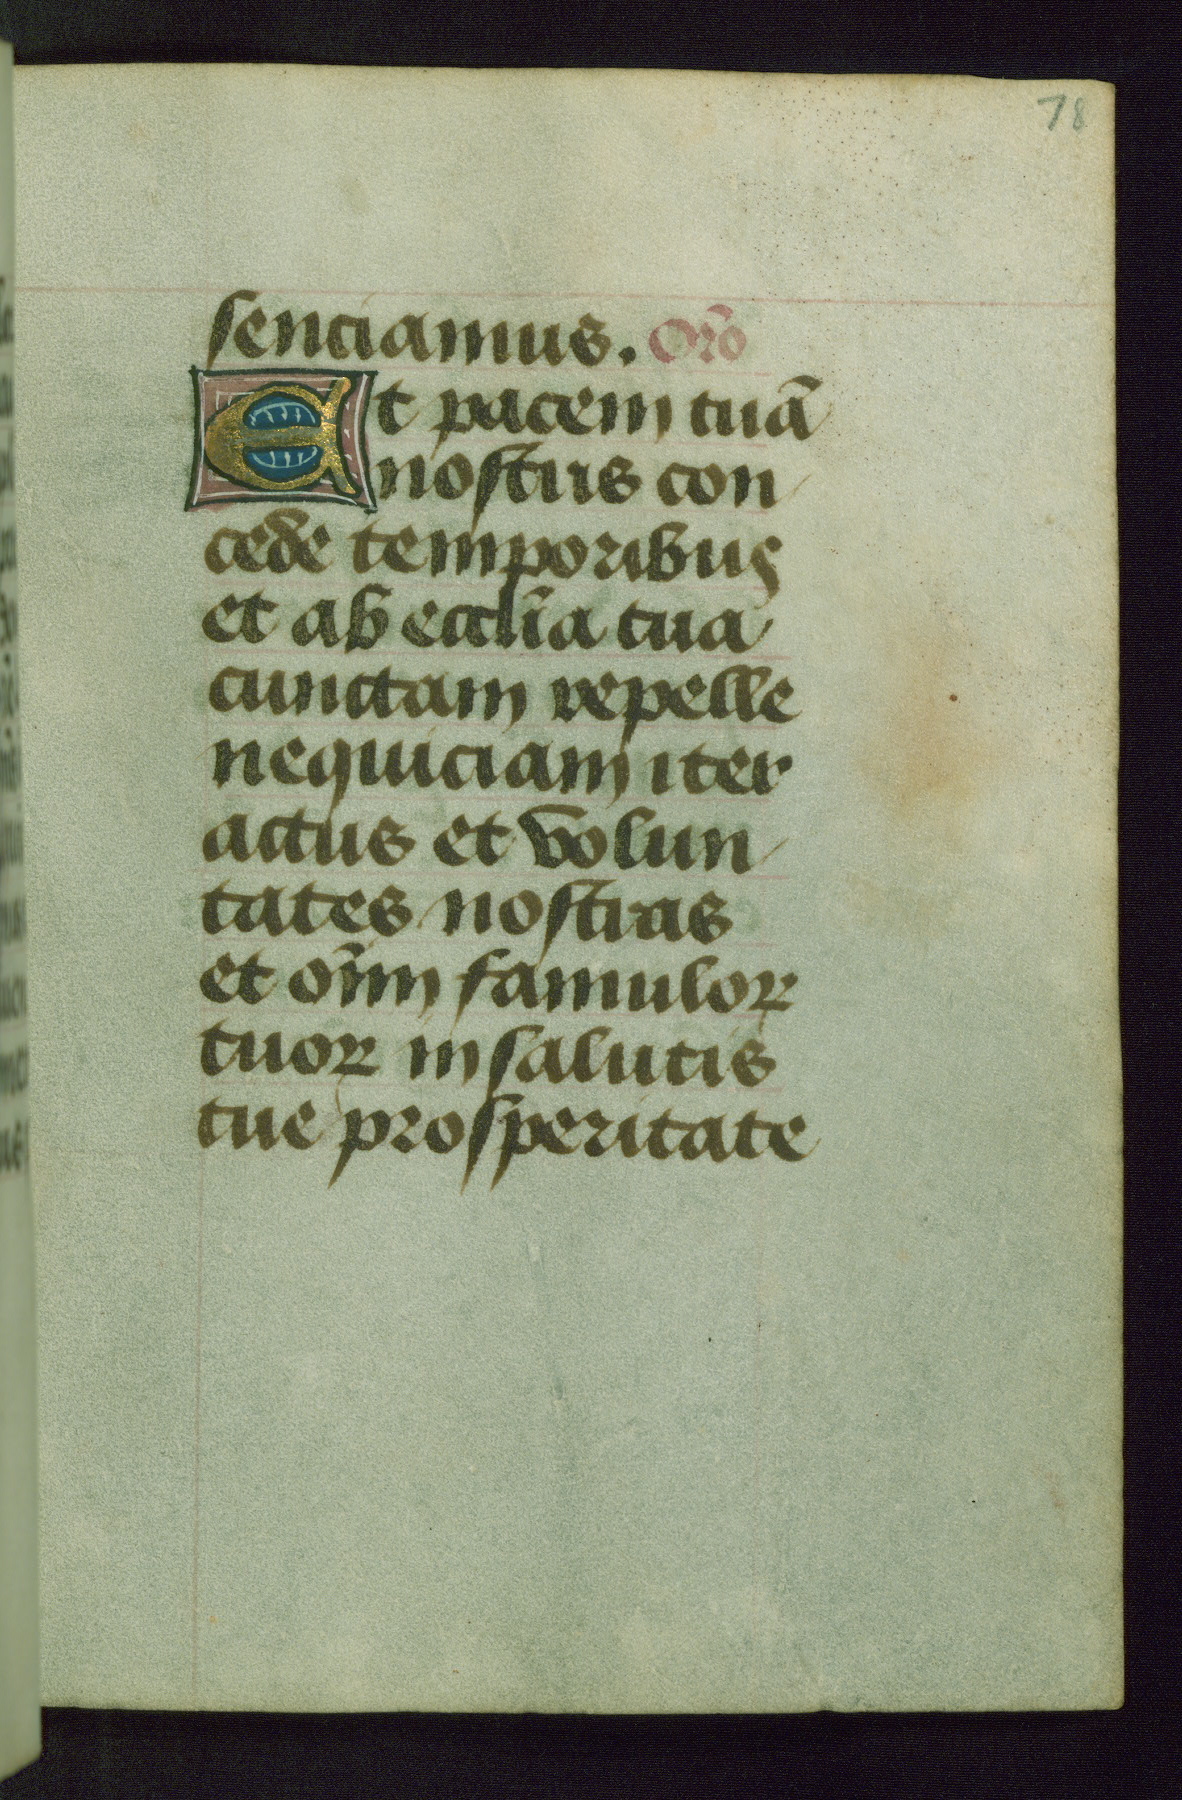 78
senciamus. Orõ
Et pacem tuã
nostris con
cede temporibus
et ab eccl̃ia tua
cunctam repelle
nequiciam iter
actus et volun
tates nostras
et om̃nĩ famulorꝝ
tuorꝝ in salutis
tue prosperitate